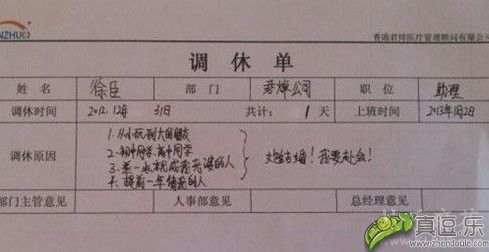 NZHUO
香港君焯医疗管理顾问有限公司
调 休 单
姓 名 徐臣 部 门 君焯公司 职 位 助理
调休时间 2012.12年 31日 共计: 1 天 上班时间 2013年1月2日
调休原因
1.从小玩到大的朋友
2.初中同学,高中同学
3.差一点就成
的人
4.提前一年
的人
！我要赴会！
部门主管意见 人事部意见 总经理意见
真逗.乐
www.zhendoule.com